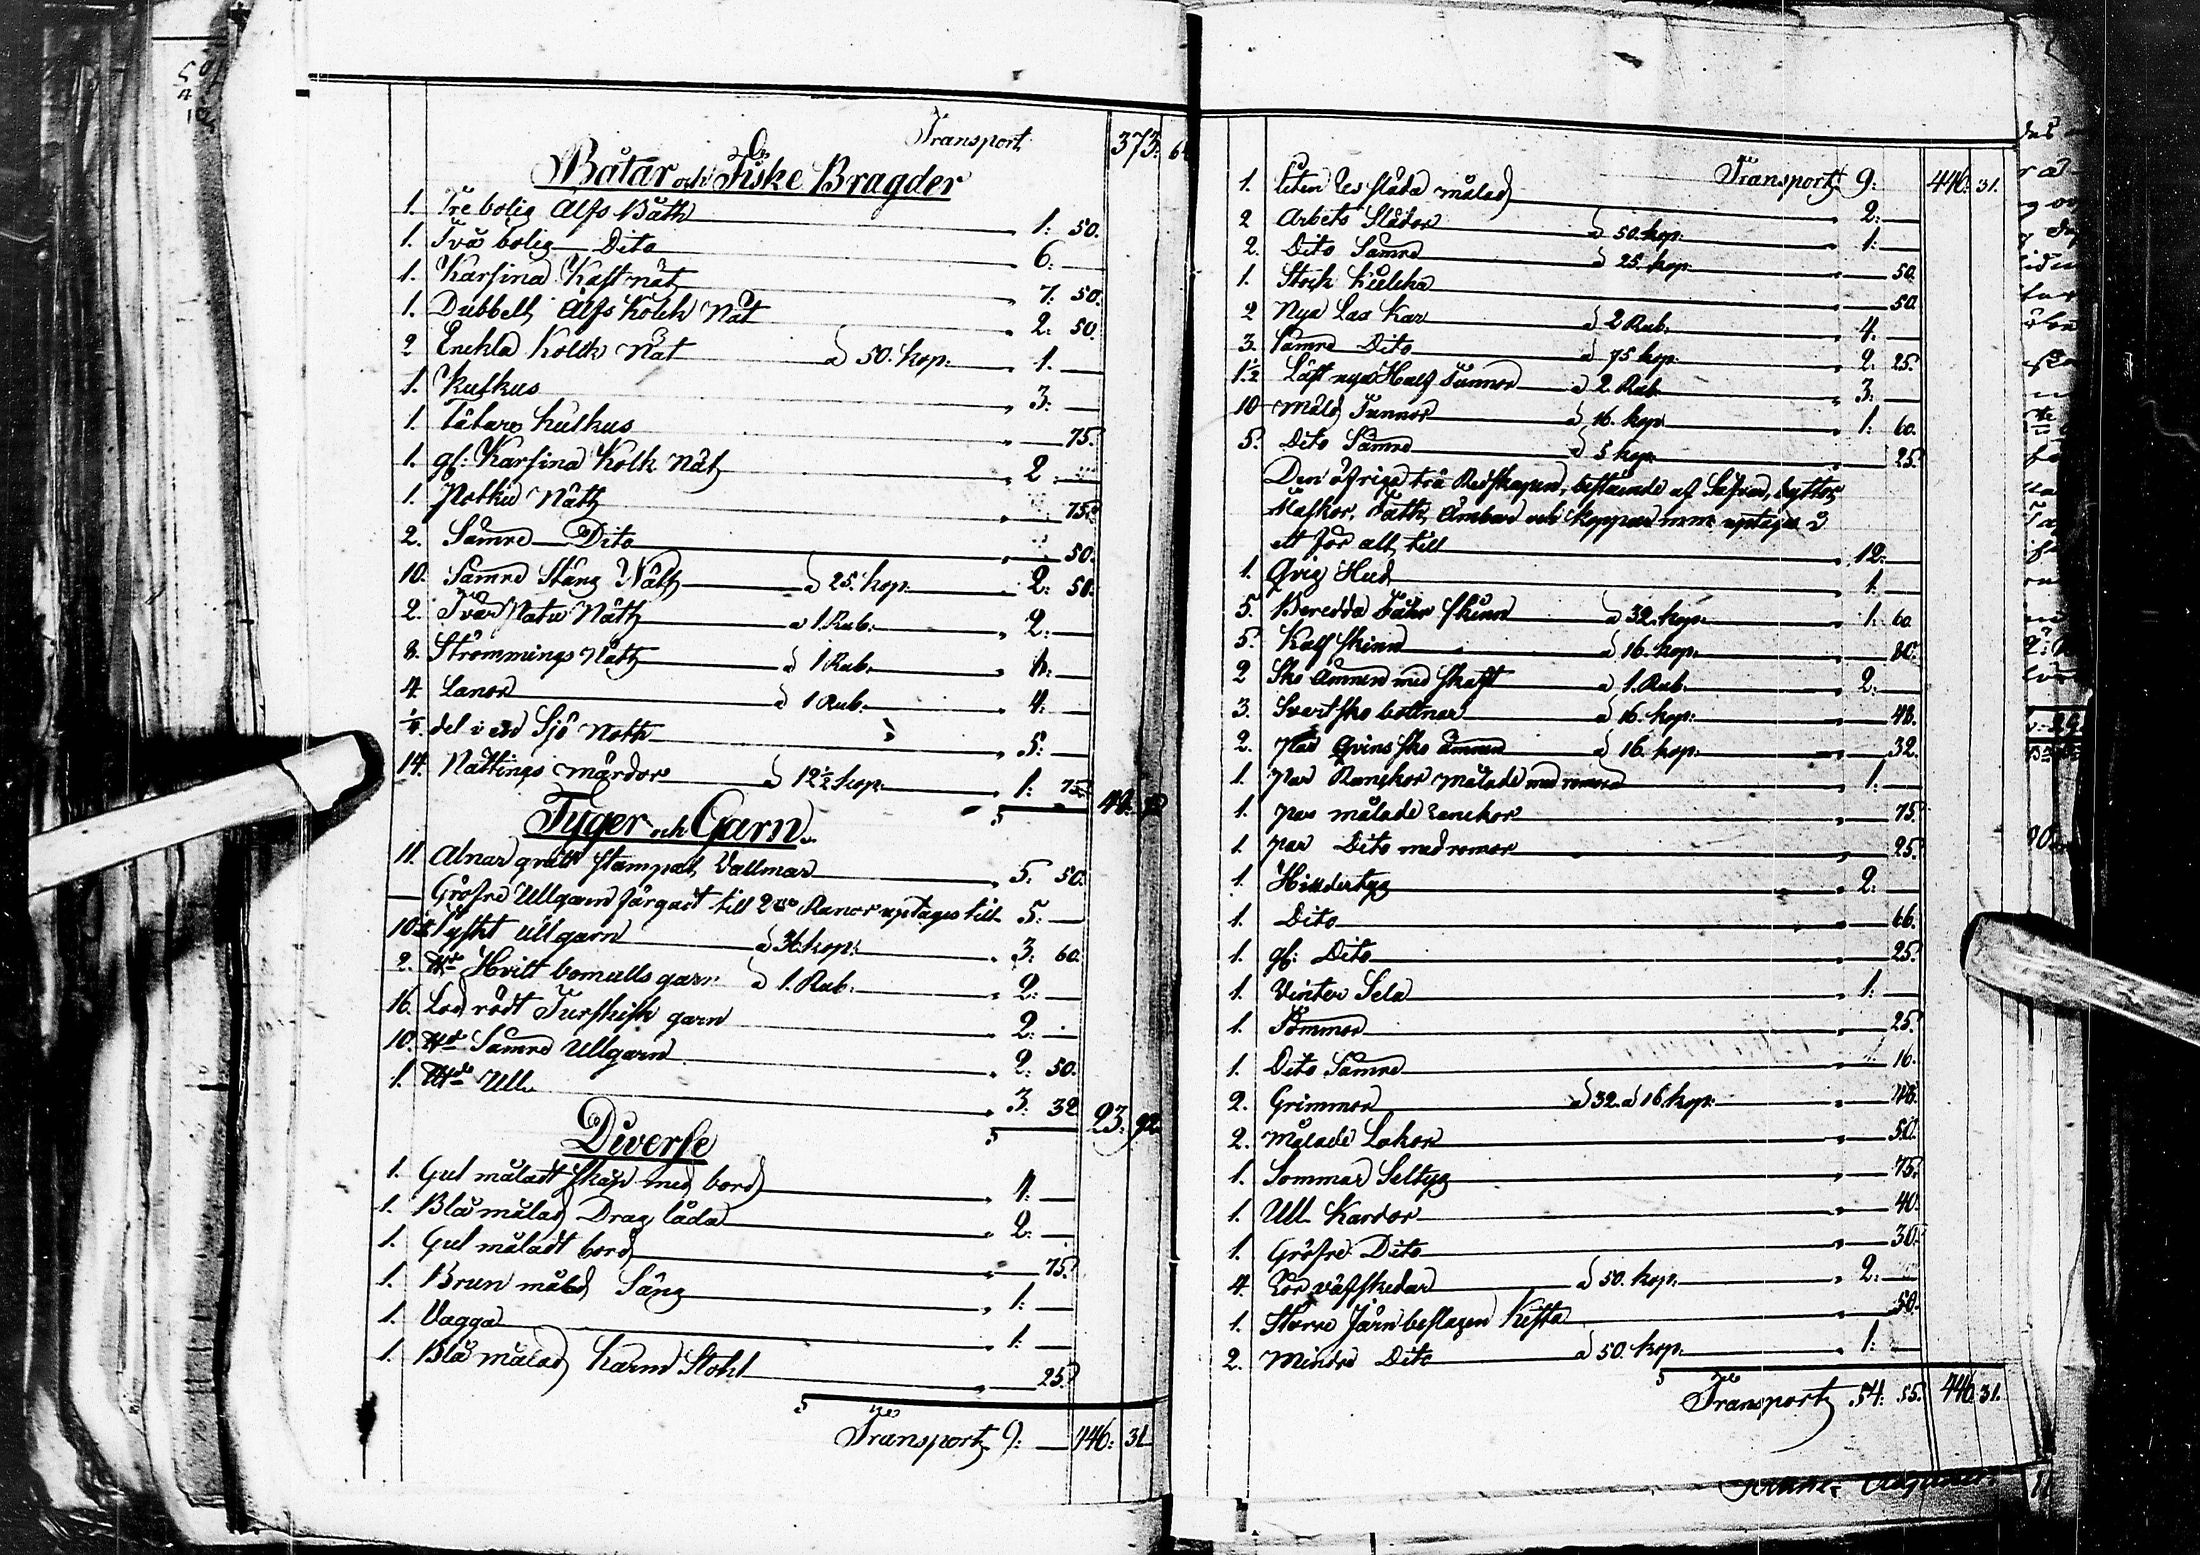 Transport 373:
Båtar och Fiske Bragder
1. Trebolig Älfs Båth 1: 50.
1. Två bolig Dito 6:
1. Karsina Kastnät 7: 50.
1. Dubbelt Älfs Kolck Nät 2: 50.
2 Enckla Kolck Nät à 50. kop: 1.
1. Kulkus 3:
1. Tätare Kulkus 75.
1. gl: Karsina Kolk Nät 2
1. Notku Nätt 75.
2. Sämre Dito 50.
10. Sämre Stäng Nätt à 25. kop: 2: 50.
2. Nätt à 1 Rub: 2:
8. Strömmings Nätt à 1 Rub.
4. Lanor à 1 Rub: 4:
del i en Sjö Noth 5:
14. Nättings märdor à 12½ kop: 1: 75.
Tyger och Garn
11. Alnar grått stampat Vallmar 5. 50.
Gröfre Ullgarn färgadt till 2ne Ranor uptages till 5:
Tyskt Ullgarn à 36 kop: 3: 60.
2. Hvitt bomulls garn à 1. Rub: 2:
16. Lod rödt Turskisk garn 2:
10. Sämre Ullgarn 2: 50.
1. Ull 3: 32 23: 92
Diverse
1. Gul måladt skåp med bord 4:
1. Blå målad Drag låda 2:
1. Gul måladt bord 75.
1. Brun målad Säng 1:
1. Vagga 1:
1. Blå målad Karm Stohl 25.
Transport 9: 446: 31
Transport 9: 446: 31.
1. Liten släda målad 2:
2 Arbets Slädor à 50. kop: 1:
2. Dito Sämre à 25. kop: 50.
1. Stock Kiälcka 50.
2 Nya Lax Kar à 2 Rub: 4:
3. Sämre Dito à 75 kop: 2: 25.
1½ Läst nya Half Tunnor à 2. Rub. 3:
10 Måls Tunnor à 16. kop 1: 60.
5. Dito Sämre à 5 kop: 25.
Den öfriga trä Redskapen, bestående af Såfvar, byttor,
Fath, Ämbar och Koppar mm: uptages i
ett för alt till 12:
1. Qvig Hud 1:
5. Beredda Fåhr skinn à 32. kop: 1: 60.
5. Kalf skinn à 16. kop: 80.
2 Sko Ämnen med skaft à 1. Rub. 2:
3. Svart sko bottnar à 16. kop: 48.
2. par Qvins sko ämnen à 16. kop: 32.
1. par Ranckor målade med remmar 1:
1. par målade Ranckor 75.
1. par Dito med remmor 25.
1. Hilldertyg 2:
1. Dito 66.
1. gl: Dito 25.
1. Vinter Sela 1:
1. Tömmar 25.
1. Dito Sämre 16.
2. Grimmor à 32. à 16. kop: 48.
2. Målade Lokor 50.
1. Sommar Seltyg 75.
1. Ull Kardor 40.
1. Gröfre Dito 30.
4. Rör väfskedar à 50. kop: 2:
1. Större Järn beslagen Kista 50.
2. Mindre Dito à 50. kop: 1:
Transport 54: 55. 446: 31.